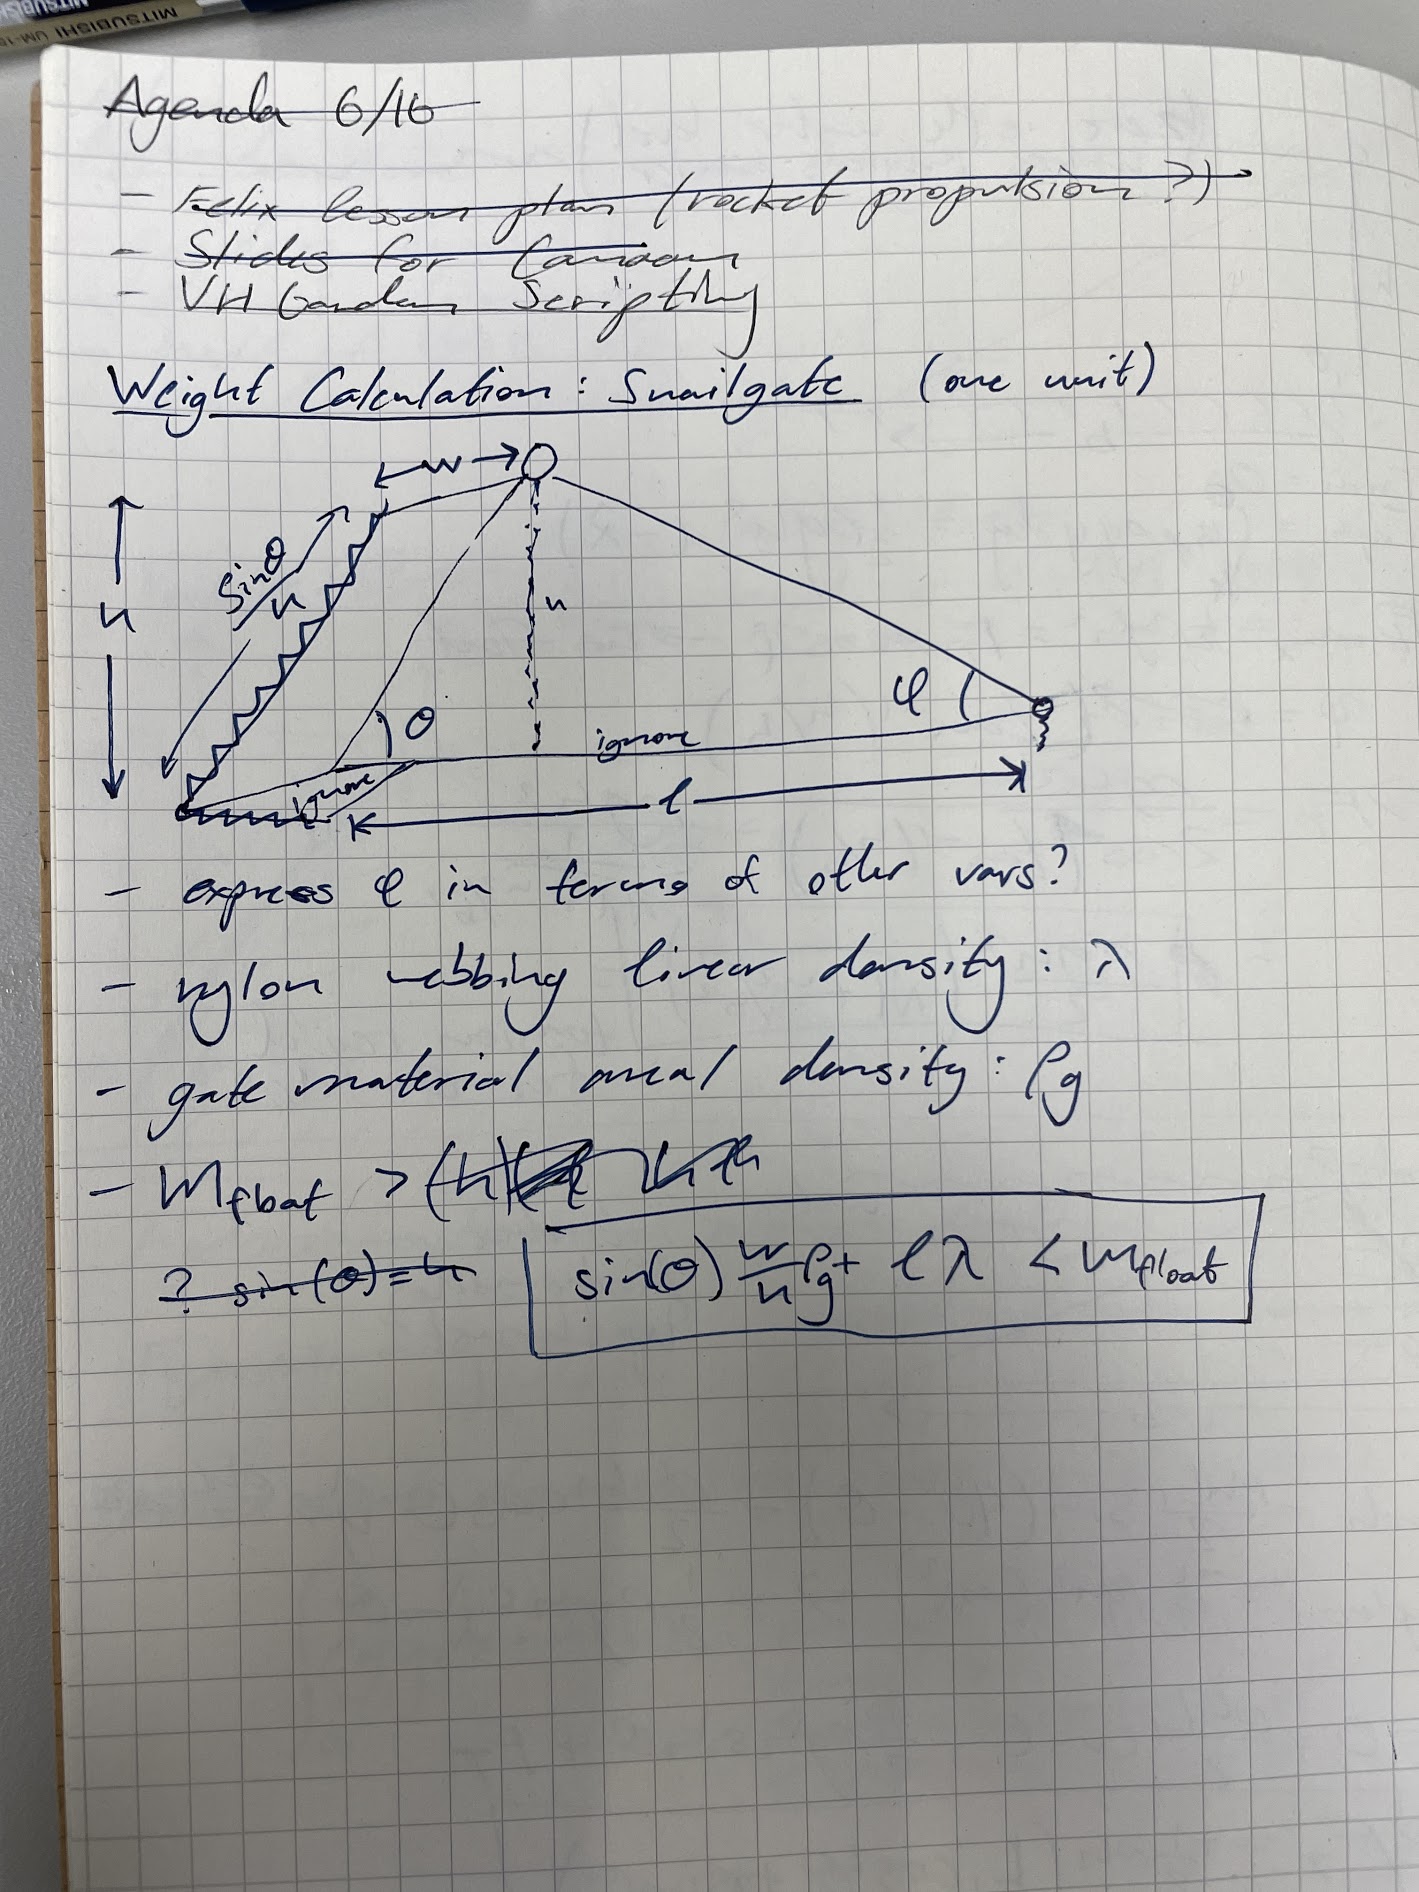 MITSUBISHI
MITSUBISHI UM-15
Agenda 6/16
- Felix lesson plan (rocket propulsion?)
- Slides for Canaan
- VH Garden Scripting
Weight Calculation: Snailgate (one unit)
w
h
sinθ
h
h
θ
φ
ignore
ignore
l
- express φ in terms of other vars?
- nylon webbing linear density: λ
- gate material areal density: ρg
- Mfloat > (h)
? sin(θ)=h
sin(θ) w/h ρg + lλ < mfloat